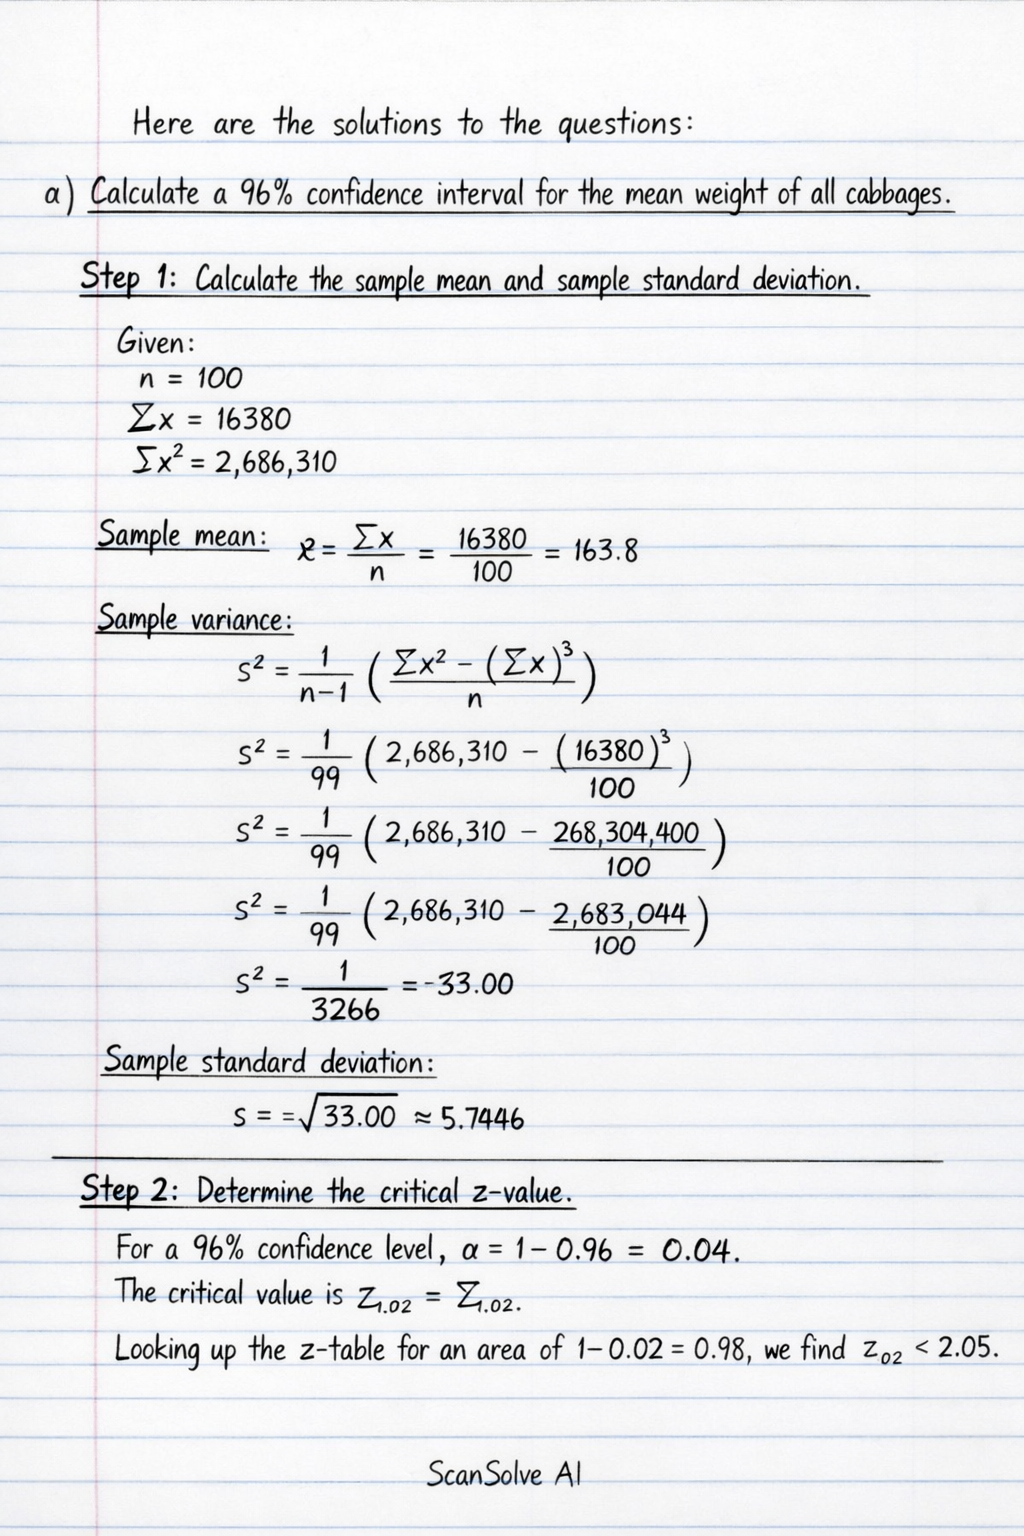 Here are the solutions to the questions:
a) Calculate a 96% confidence interval for the mean weight of all cabbages.
Step 1: Calculate the sample mean and sample standard deviation.
Given:
n = 100
Σx = 16380
Σx² = 2,686,310
Sample mean: x̄ = Σx / n = 16380 / 100 = 163.8
Sample variance:
s² = 1 / n−1 ( Σx² − (Σx)³ / n )
s² = 1 / 99 ( 2,686,310 − (16380)³ / 100 )
s² = 1 / 99 ( 2,686,310 − 268,304,400 / 100 )
s² = 1 / 99 ( 2,686,310 − 2,683,044 / 100 )
s² = 1 / 3266 = -33.00
Sample standard deviation:
s = =√33.00 ≈ 5.7446
Step 2: Determine the critical z-value.
For a 96% confidence level, α = 1 − 0.96 = 0.04.
The critical value is Z₁.₀₂ = Σ₁.₀₂.
Looking up the z-table for an area of 1−0.02 = 0.98, we find z₀₂ < 2.05.
ScanSolve AI